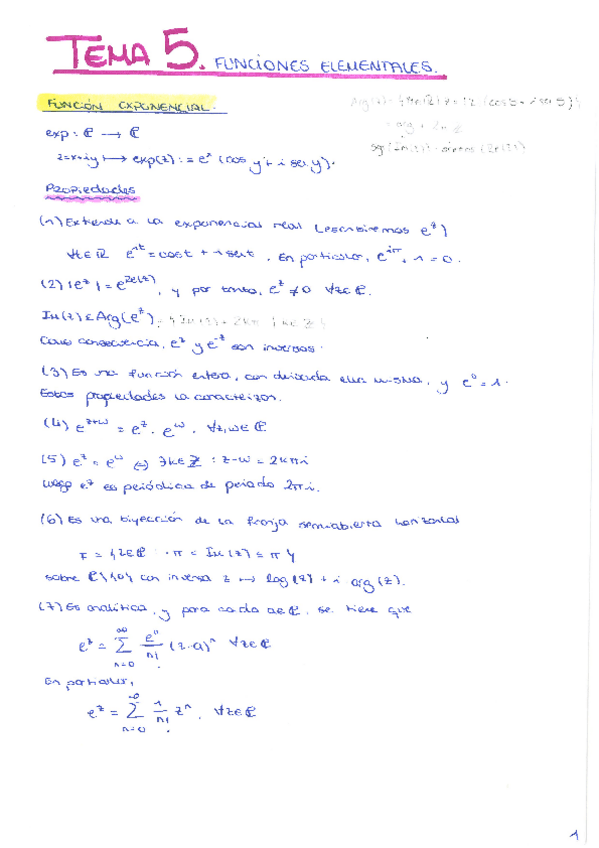 TEMA 5. FUNCIONES ELEMENTALES.
FUNCIÓN EXPONENCIAL.
exp: ℂ → ℂ
z=x+iy ↦ exp(z) := eˣ (cos y + i sen y).
Propiedades
(1) Extiende a la exponencial real (escribiremos e^z)
∀t∈ℝ e^{it} = cos t + i sen t. En particular, e^{iπ} + 1 = 0.
(2) |e^z| = e^{Re(z)}, y por tanto, e^z ≠ 0 ∀z∈ℂ.
Im(z) ∈ Arg(e^z)
Como consecuencia, e^z y e^{-z} son inversos.
(3) Es una función entera, con derivada ella misma, y e^0 = 1.
Estas propiedades la caracterizan.
(4) e^{z+w} = e^z · e^w. ∀z,w∈ℂ
(5) e^z = e^w ⇔ ∃k∈ℤ : z-w = 2kπi
luego e^z es periódica de periodo 2πi.
(6) Es una biyección de la franja semiabierta horizontal
F = {z∈ℂ : -π < Im(z) ≤ π}
sobre ℂ\{0} con inversa z ↦ log|z| + i arg(z).
(7) Es analítica, y para cada a∈ℂ, se tiene que
e^z = ∑_{n=0}^{∞} e^a/n! (z-a)^n ∀z∈ℂ
En particular,
e^z = ∑_{n=0}^{∞} 1/n! z^n. ∀z∈ℂ
1